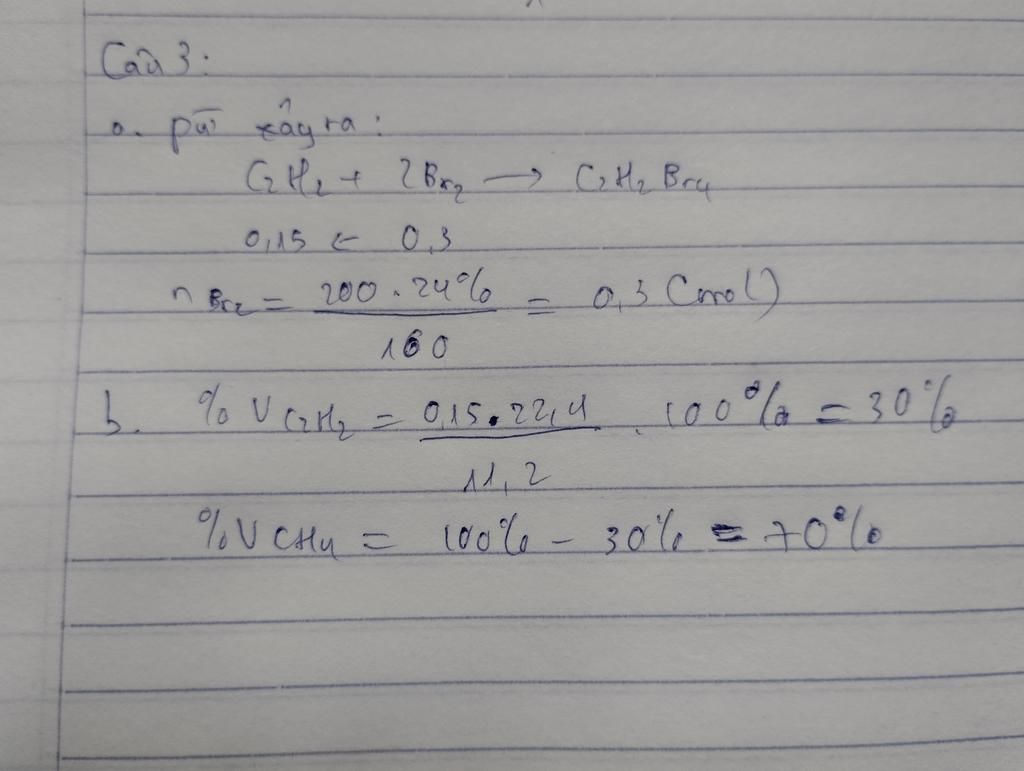 Câu 3:
a. pứ xảy ra:
C2H2 + 2Br2 → C2H2Br4
0,15 ← 0,3
n Br2 = 200.24% / 160 = 0,3 (mol)
b. % V C2H2 = 0,15.22,4 / 11,2 . 100% = 30%
% V CH4 = 100% - 30% = 70%